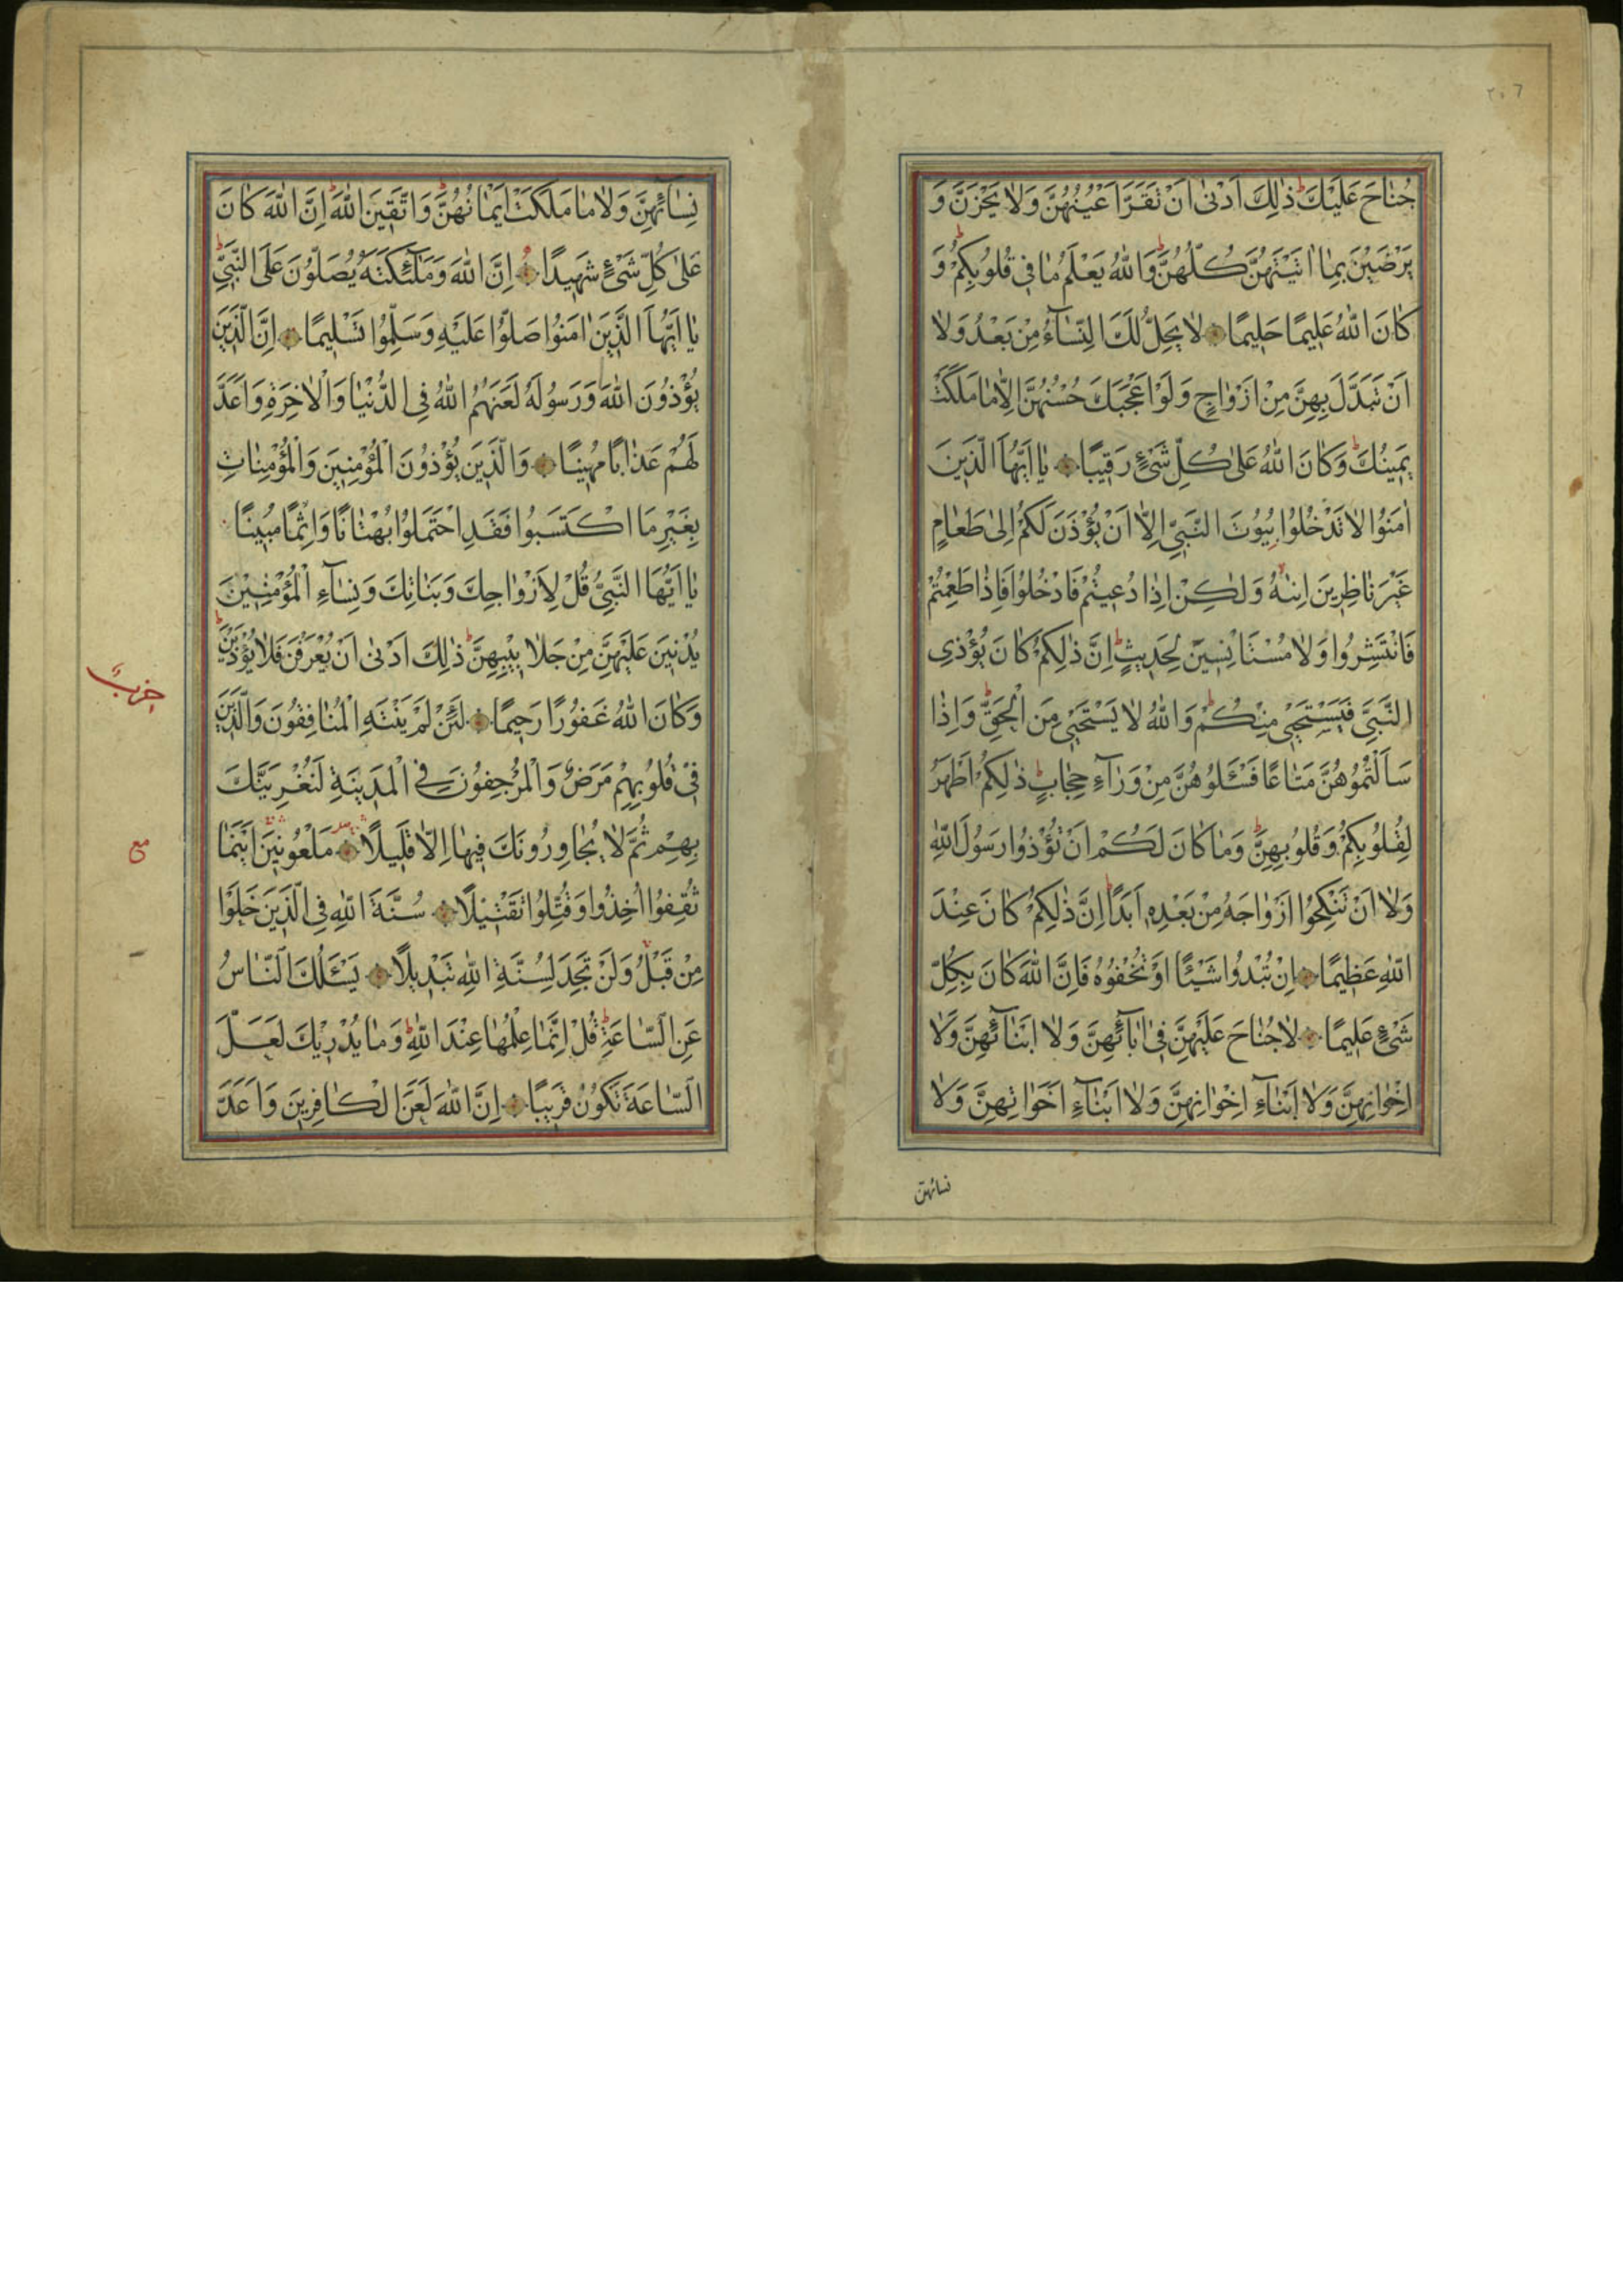 ٢٠٦
جُنَاحَ عَلَيْكَ ذٰلِكَ اَدْنٰى اَنْ تَقَرَّ اَعْيُنُهُنَّ وَلَا يَحْزَنَّ وَ
يَرْضَيْنَ بِمَا اٰتَيْتَهُنَّ كُلُّهُنَّ وَاللّٰهُ يَعْلَمُ مَا فِى قُلُوبِكُمْ وَ
كَانَ اللّٰهُ عَلِيمًا حَلِيمًا لَا يَحِلُّ لَكَ النِّسَاۤءُ مِنْ بَعْدُ وَلَا
اَنْ تَبَدَّلَ بِهِنَّ مِنْ اَزْوَاجٍ وَلَوْ اَعْجَبَكَ حُسْنُهُنَّ اِلَّا مَا مَلَكَتْ
يَمِينُكَ وَكَانَ اللّٰهُ عَلٰى كُلِّ شَىْءٍ رَقِيبًا يَا اَيُّهَا الَّذِينَ
اٰمَنُوا لَا تَدْخُلُوا بُيُوتَ النَّبِىِّ اِلَّا اَنْ يُؤْذَنَ لَكُمْ اِلٰى طَعَامٍ
غَيْرَ نَاظِرِينَ اِنٰيهُ وَلٰكِنْ اِذَا دُعِيتُمْ فَادْخُلُوا فَاِذَا طَعِمْتُمْ
فَانْتَشِرُوا وَلَا مُسْتَاْنِسِينَ لِحَدِيثٍ اِنَّ ذٰلِكُمْ كَانَ يُؤْذِى
النَّبِىَّ فَيَسْتَحْيٖ مِنْكُمْ وَاللّٰهُ لَا يَسْتَحْيٖ مِنَ الْحَقِّ وَاِذَا
سَاَلْتُمُوهُنَّ مَتَاعًا فَسْـَٔلُوهُنَّ مِنْ وَرَاۤءِ حِجَابٍ ذٰلِكُمْ اَطْهَرُ
لِقُلُوبِكُمْ وَقُلُوبِهِنَّ وَمَا كَانَ لَكُمْ اَنْ تُؤْذُوا رَسُولَ اللّٰهِ
وَلَا اَنْ تَنْكِحُوا اَزْوَاجَهُ مِنْ بَعْدِهٖ اَبَدًا اِنَّ ذٰلِكُمْ كَانَ عِنْدَ
اللّٰهِ عَظِيمًا اِنْ تُبْدُوا شَيْـًٔا اَوْ تُخْفُوهُ فَاِنَّ اللّٰهَ كَانَ بِكُلِّ
شَىْءٍ عَلِيمًا لَا جُنَاحَ عَلَيْهِنَّ فِى اٰبَاۤئِهِنَّ وَلَا اَبْنَاۤئِهِنَّ وَلَا
اِخْوَانِهِنَّ وَلَا اَبْنَاۤءِ اِخْوَانِهِنَّ وَلَا اَبْنَاۤءِ اَخَوَاتِهِنَّ وَلَا
نسائهن
نِسَاۤئِهِنَّ وَلَا مَا مَلَكَتْ اَيْمَانُهُنَّ وَاتَّقِينَ اللّٰهَ اِنَّ اللّٰهَ كَانَ
عَلٰى كُلِّ شَىْءٍ شَهِيدًا اِنَّ اللّٰهَ وَمَلٰۤئِكَتَهُ يُصَلُّونَ عَلَى النَّبِىِّ
يَا اَيُّهَا الَّذِينَ اٰمَنُوا صَلُّوا عَلَيْهِ وَسَلِّمُوا تَسْلِيمًا اِنَّ الَّذِينَ
يُؤْذُونَ اللّٰهَ وَرَسُولَهُ لَعَنَهُمُ اللّٰهُ فِى الدُّنْيَا وَالْاٰخِرَةِ وَاَعَدَّ
لَهُمْ عَذَابًا مُهِينًا وَالَّذِينَ يُؤْذُونَ الْمُؤْمِنِينَ وَالْمُؤْمِنَاتِ
بِغَيْرِ مَا اكْتَسَبُوا فَقَدِ احْتَمَلُوا بُهْتَانًا وَاِثْمًا مُبِينًا
يَا اَيُّهَا النَّبِىُّ قُلْ لِاَزْوَاجِكَ وَبَنَاتِكَ وَنِسَاۤءِ الْمُؤْمِنِينَ
يُدْنِينَ عَلَيْهِنَّ مِنْ جَلَابِيبِهِنَّ ذٰلِكَ اَدْنٰى اَنْ يُعْرَفْنَ فَلَا يُؤْذَيْنَ
وَكَانَ اللّٰهُ غَفُورًا رَحِيمًا لَئِنْ لَمْ يَنْتَهِ الْمُنَافِقُونَ وَالَّذِينَ
فِى قُلُوبِهِمْ مَرَضٌ وَالْمُرْجِفُونَ فِى الْمَدِينَةِ لَنُغْرِيَنَّكَ
بِهِمْ ثُمَّ لَا يُجَاوِرُونَكَ فِيهَا اِلَّا قَلِيلًا مَلْعُونِينَ اَيْنَمَا
ثُقِفُوا اُخِذُوا وَقُتِّلُوا تَقْتِيلًا سُنَّةَ اللّٰهِ فِى الَّذِينَ خَلَوْا
مِنْ قَبْلُ وَلَنْ تَجِدَ لِسُنَّةِ اللّٰهِ تَبْدِيلًا يَسْـَٔلُكَ النَّاسُ
عَنِ السَّاعَةِ قُلْ اِنَّمَا عِلْمُهَا عِنْدَ اللّٰهِ وَمَا يُدْرِيكَ لَعَلَّ
السَّاعَةَ تَكُونُ قَرِيبًا اِنَّ اللّٰهَ لَعَنَ الْكَافِرِينَ وَاَعَدَّ
حزب
مع